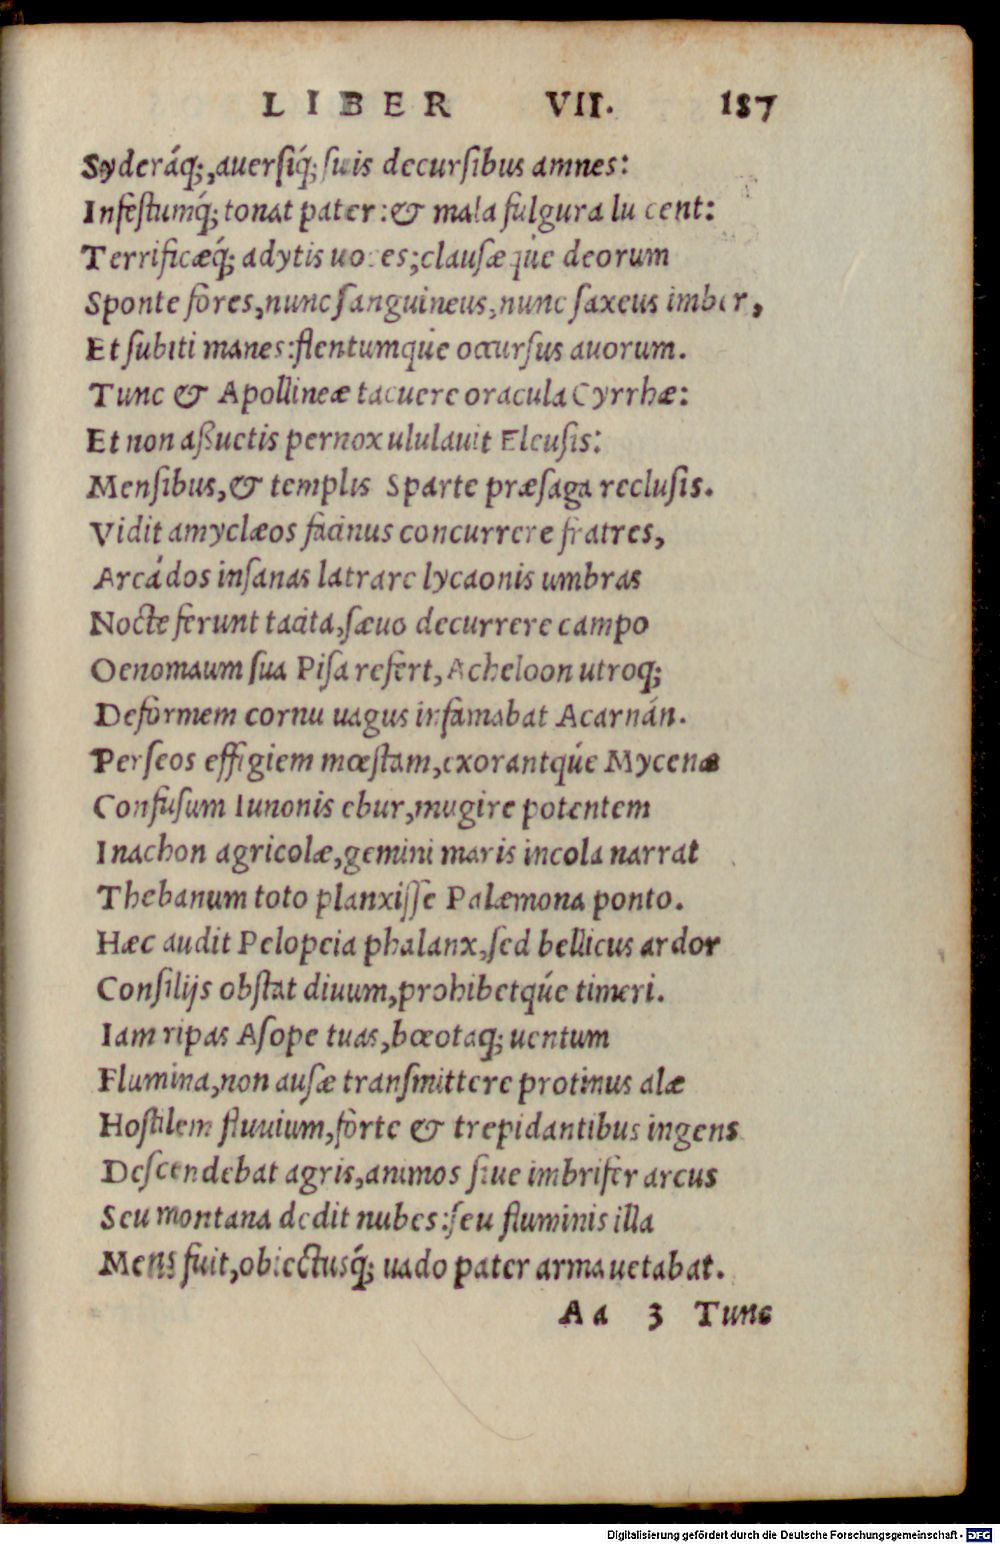 LIBER VII. 187
Syderáq;,auersiq́; suis decursibus amnes:
Infestumq́; tonat pater:& mala fulgura lucent:
Terrificæq́; adytis uoces;clausæque deorum
Sponte fores,nunc sanguineus,nunc saxeus imber,
Et subiti manes:flentumque occursus auorum.
Tunc & Apollineæ tacuere oracula Cyrrhæ:
Et non aßuetis pernox ululauit Eleusis:
Mensibus,& templis Sparte præsaga reclusis.
Vidit amyclæos facinus concurrere fratres,
Arcádos insanas latrare lycaonis umbras
Nocte ferunt tacita,sæuo decurrere campo
Oenomaum sua Pisa refert,Acheloon utroq;
Deformem cornu uagus infamabat Acarnán.
Perseos effigiem mœstam,exorantqúe Mycenæ
Confusum Iunonis ebur,mugire potentem
Inachon agricolæ,gemini maris incola narrat
Thebanum toto planxisse Palæmona ponto.
Hæc audit Pelopeia phalanx,sed bellicus ardor
Consilijs obstat diuum,prohibetqúe timeri.
Iam ripas Asope tuas,bœotaq; uentum
Flumina,non ausæ transmittere protinus alæ
Hostilem fluuium,forte & trepidantibus ingens
Descendebat agris,animos siue imbrifer arcus
Seu montana dedit nubes:seu fluminis illa
Mens fuit,obiectusq́; uado pater arma uetabat.
Aa 3 Tunc
Digitalisierung gefördert durch die Deutsche Forschungsgemeinschaft - DFG